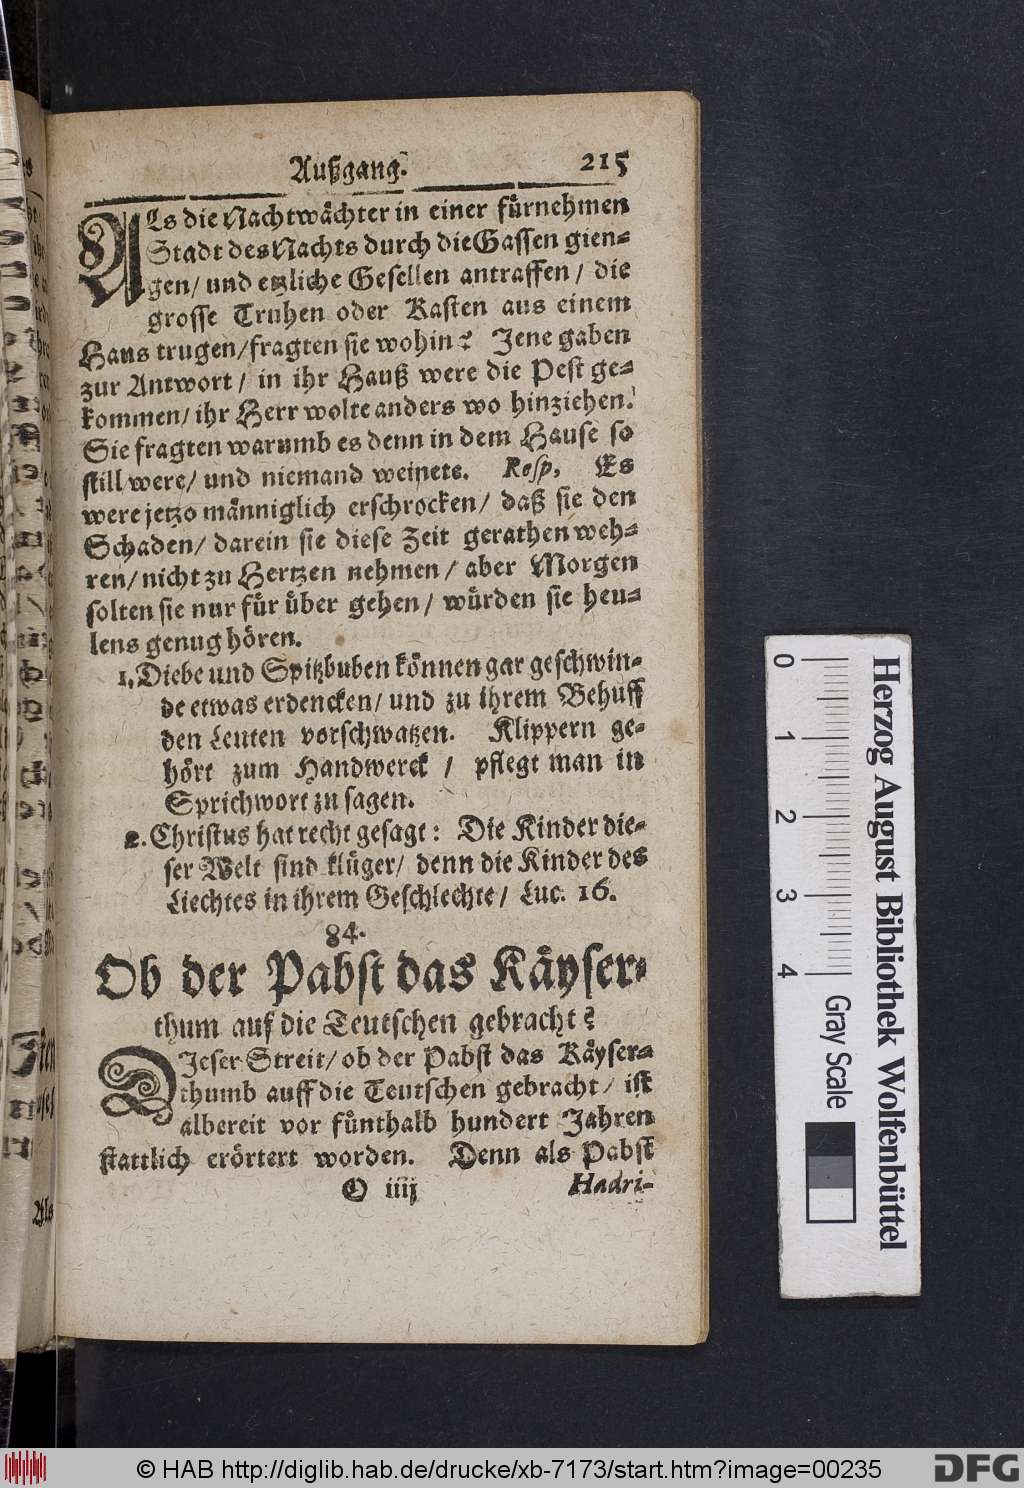 Außgang. 215
ALs die Nachtwächter in einer fürnehmen
Stadt des Nachts durch die Gassen gien-
gen/ und etzliche Gesellen antraffen/ die
grosse Truhen oder Kasten aus einem
Haus trugen/ fragten sie wohin? Jene gaben
zur Antwort/ in ihr Hauß were die Pest ge-
kommen/ ihr Herr wolte anders wo hinziehen.
Sie fragten warumb es denn in dem Hause so
still were/ und niemand weinete. Resp. Es
were jetzo männiglich erschrocken/ daß sie den
Schaden/ darein sie diese Zeit gerathen weh-
ren/ nicht zu Hertzen nehmen/ aber Morgen
solten sie nur für über gehen/ würden sie heu-
lens genug hören.
1. Diebe und Spitzbuben können gar geschwin-
de etwas erdencken/ und zu ihrem Behuff
den Leuten vorschwatzen. Klippern ge-
hört zum Handwerck / pflegt man in
Sprichwort zu sagen.
2. Christus hat recht gesagt: Die Kinder die-
ser Welt sind klüger/ denn die Kinder des
Liechtes in ihrem Geschlechte/ Luc. 16.
84.
Ob der Pabst das Käyser-
thum auf die Teutschen gebracht?
DJeser Streit/ ob der Pabst das Käyser-
thumb auff die Teutschen gebracht/ ist
albereit vor fünthalb hundert Jahren
stattlich erörtert worden. Denn als Pabst
O iiij Hadri-
Herzog August Bibliothek Wolfenbüttel
0 1 2 3 4 Gray Scale
© HAB http://diglib.hab.de/drucke/xb-7173/start.htm?image=00235
DFG